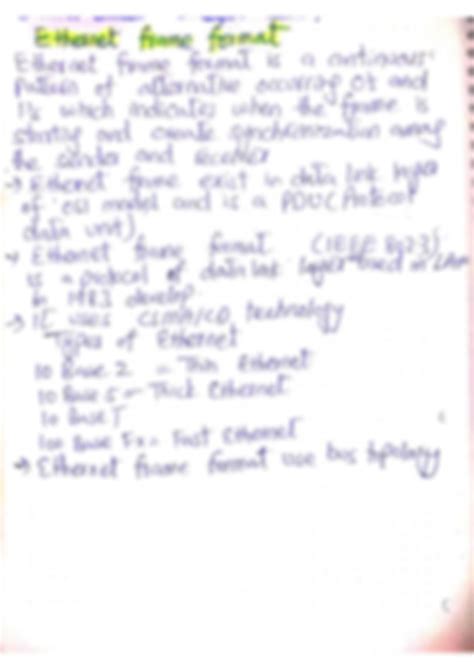 Ethernet frame format
Ethernet frame format is a continuous
pattern of alternative occurring 0s and
1s which indicates when the frame is
starting and create synchronization among
the sender and receiver
→ Ethernet frame exist in data link layer
of osi model and is a PDU (Protocol
data unit)
→ Ethernet frame format (IEEE 802.3)
is a protocol of data link layer used in LAN
in develop.
→ It uses CSMA/CD technology
Types of Ethernet
10 Base 2 = Thin Ethernet
10 Base 5 - Thick Ethernet
10 Base T
100 Base Fx = Fast Ethernet
→ Ethernet frame format use bus topology